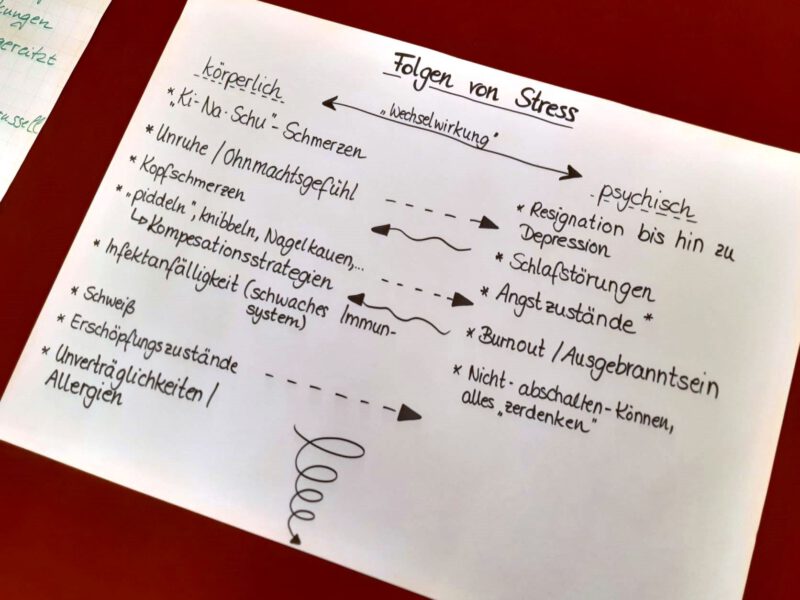 kungen
gereitzt
Folgen von Stress
körperlich
„Wechselwirkung"
* „Ki-Na-Schu"-Schmerzen
* Unruhe / Ohnmachtsgefühl
* Kopfschmerzen
* „piddeln", knibbeln, Nagelkauen,...
↳ Kompesationsstrategien
* Infektanfälligkeit (schwaches Immun-
system)
* Schweiß
* Erschöpfungszustände
* Unverträglichkeiten /
Allergien
psychisch
* Resignation bis hin zu
Depression
* Schlafstörungen
* Angstzustände *
* Burnout / Ausgebranntsein
* Nicht-abschalten-Können,
alles „zerdenken"